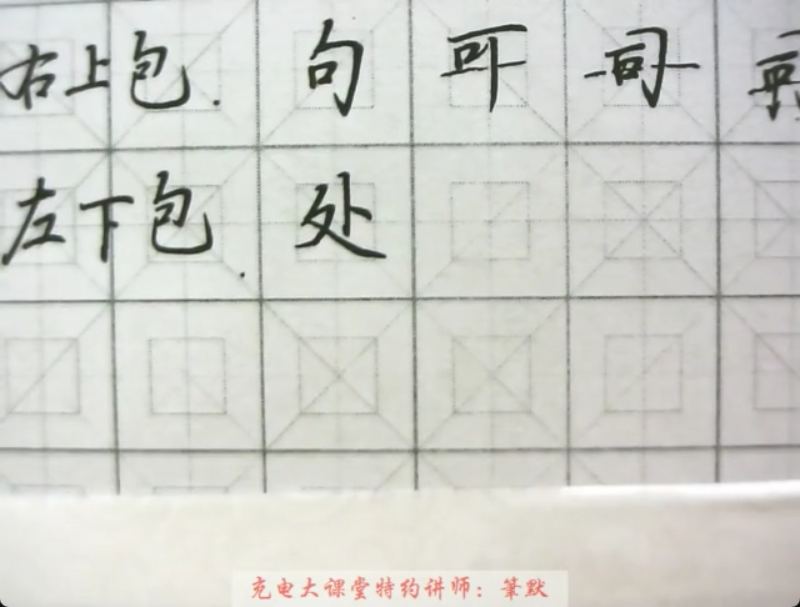 右上包. 句 可 司
左下包. 处
充电大课堂特约讲师：筆默